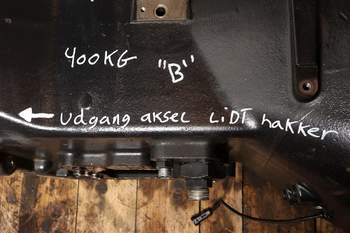 400KG "B"
← Udgang aksel LiDT hakker